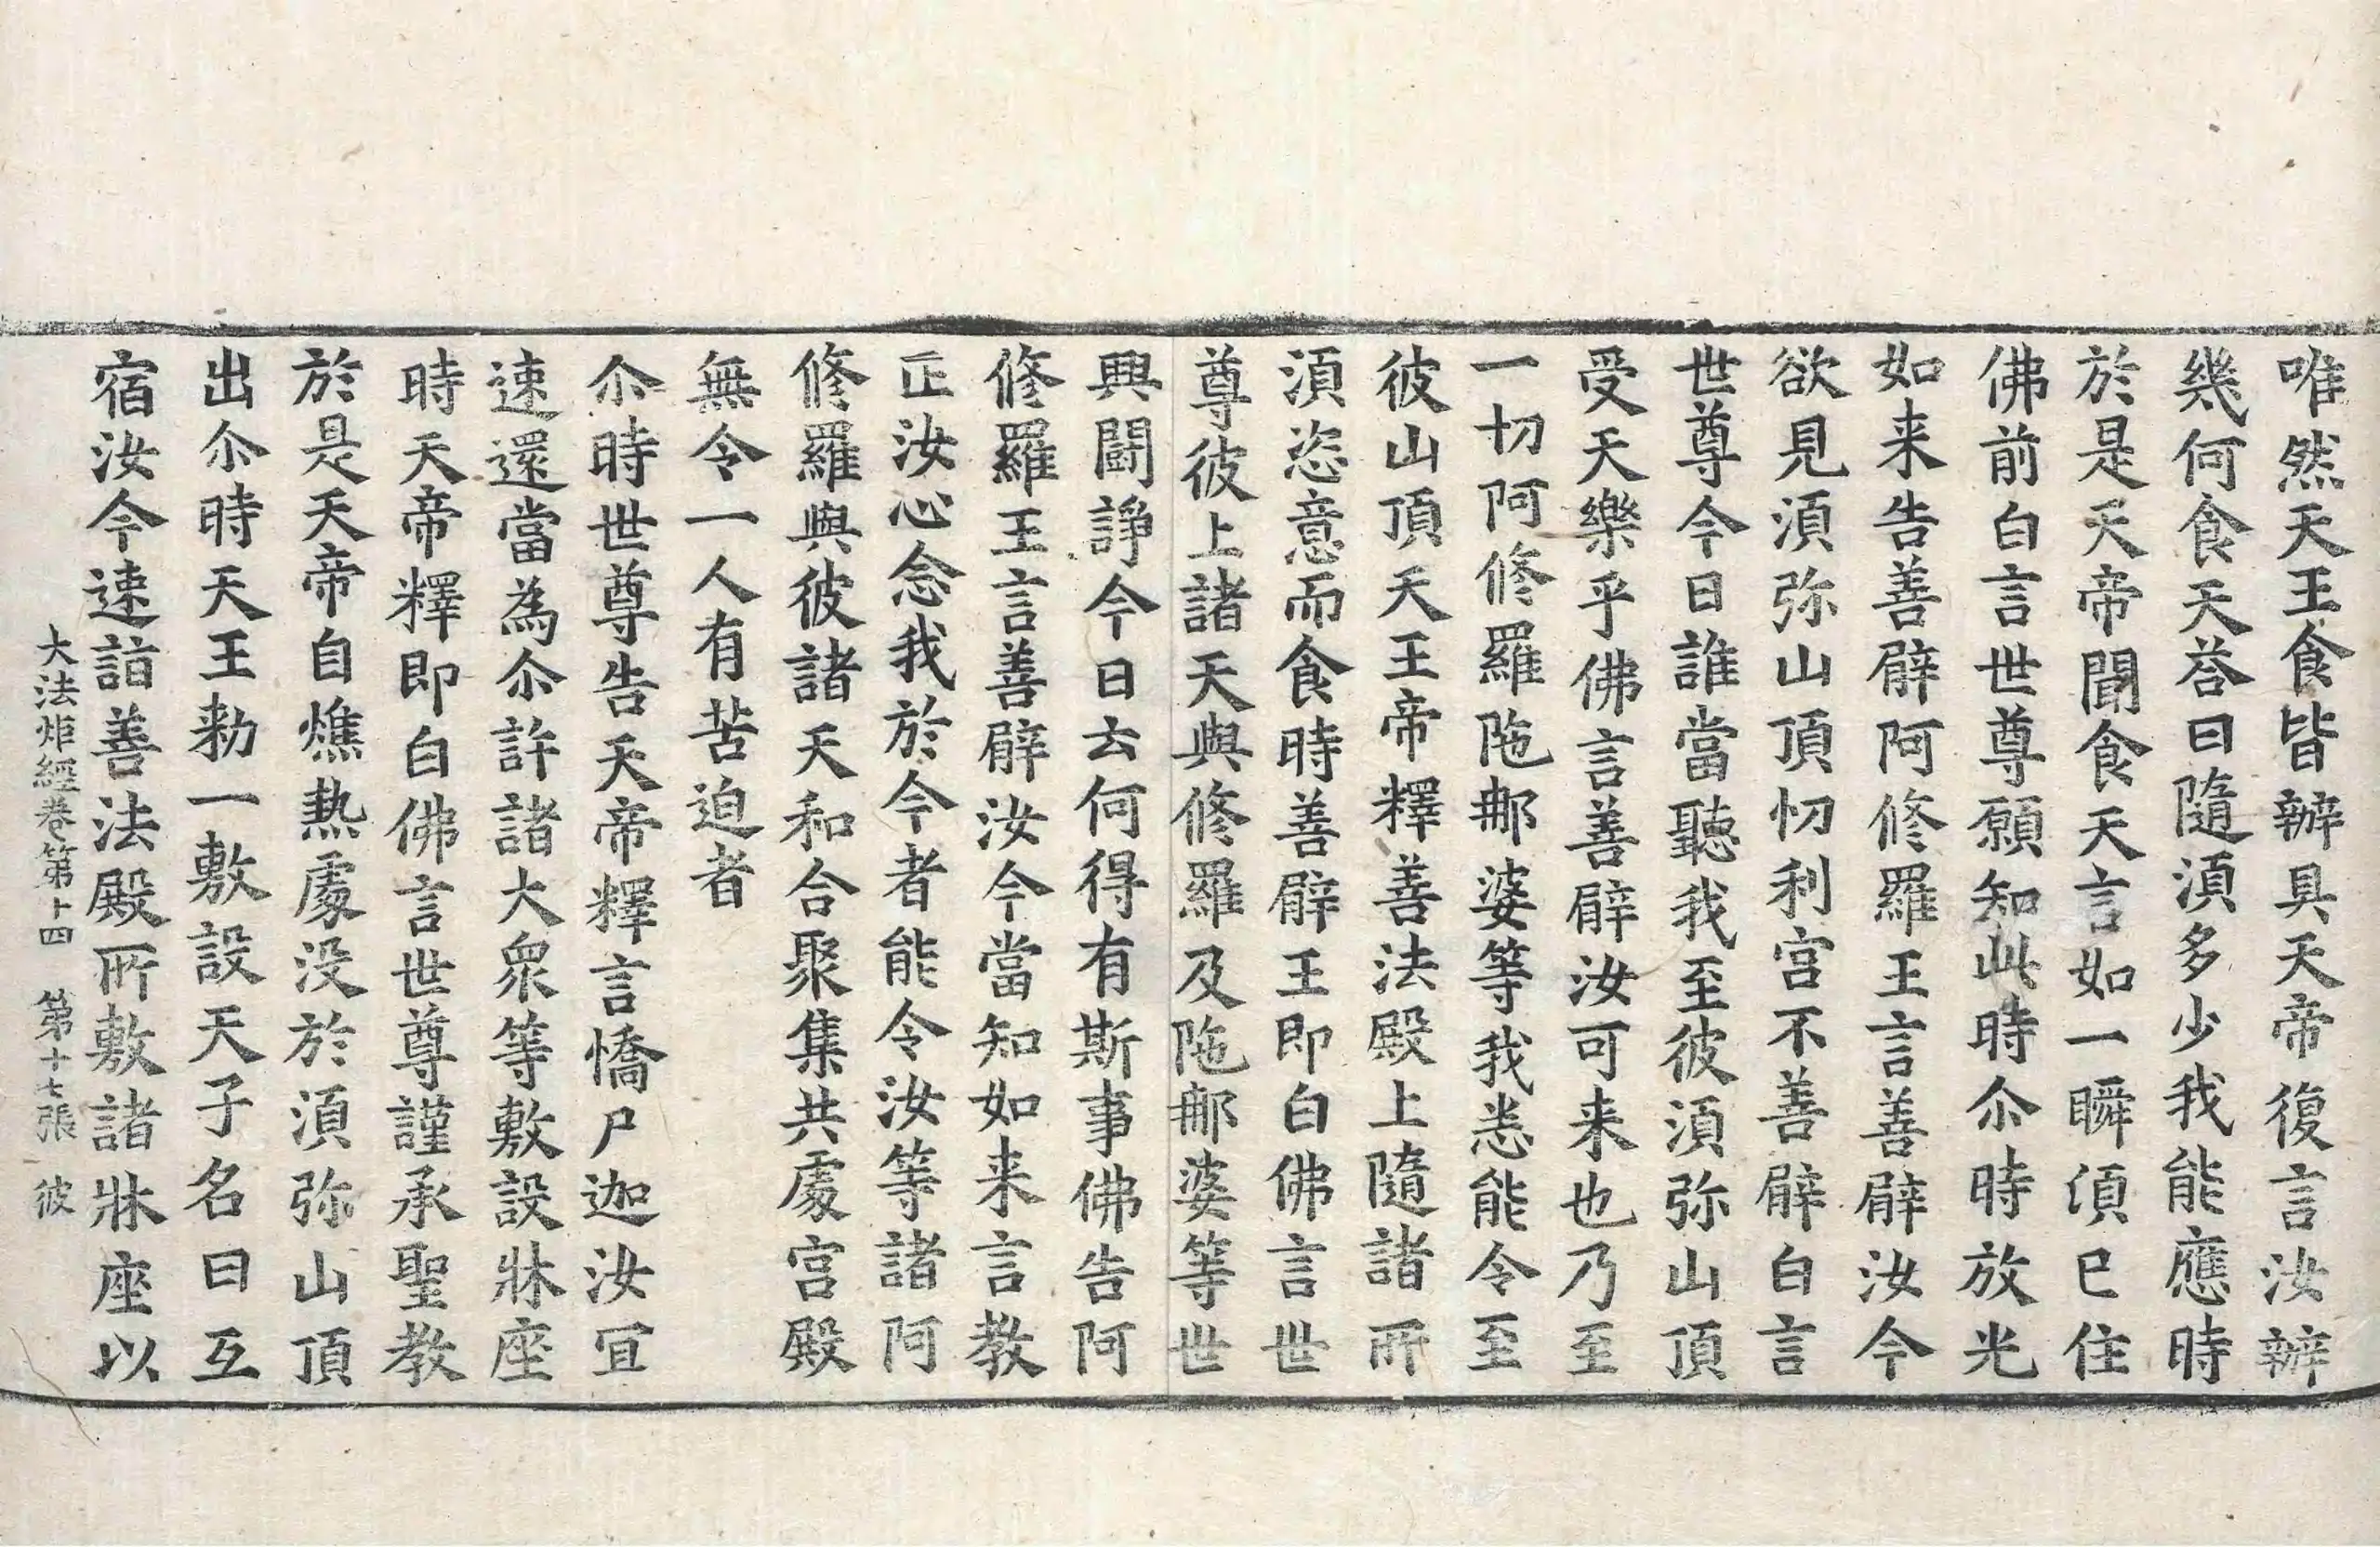 唯然天王食皆辦具天帝復言汝辦
幾何食天荅曰隨湏多少我能應時
於是天帝聞食天言如一瞬湏已住
佛前白言世尊願知此時尒時放光
如来告善臂阿修羅王言善臂汝今
欲見湏弥山頂忉利宫不善臂白言
世尊今日誰當聽我至彼湏弥山頂
受天樂乎佛言善臂汝可来也乃至
一切阿修羅陁那婆等我悉能令至
彼山頂天王帝釋善法殿上隨諸所
湏恣意而食時善臂王即白佛言世
尊彼上諸天與修羅及陁那婆等世
興闘諍今日云何得有斯事佛告阿
修羅王言善臂汝今當知如来言教
正汝心念我於今者能令汝等諸阿
修羅與彼諸天和合聚集共處宫殿
無令一人有苦迫者
尒時世尊告天帝釋言憍尸迦汝冝
速還當為尒許諸大衆等敷設牀座
時天帝釋即白佛言世尊謹承聖教
於是天帝自燋熱處没於湏弥山頂
出尒時天王勑一敷設天子名曰互
宿汝今速詣善法殿所敷諸牀座以
大法炬經卷第十四　第十七張　彼